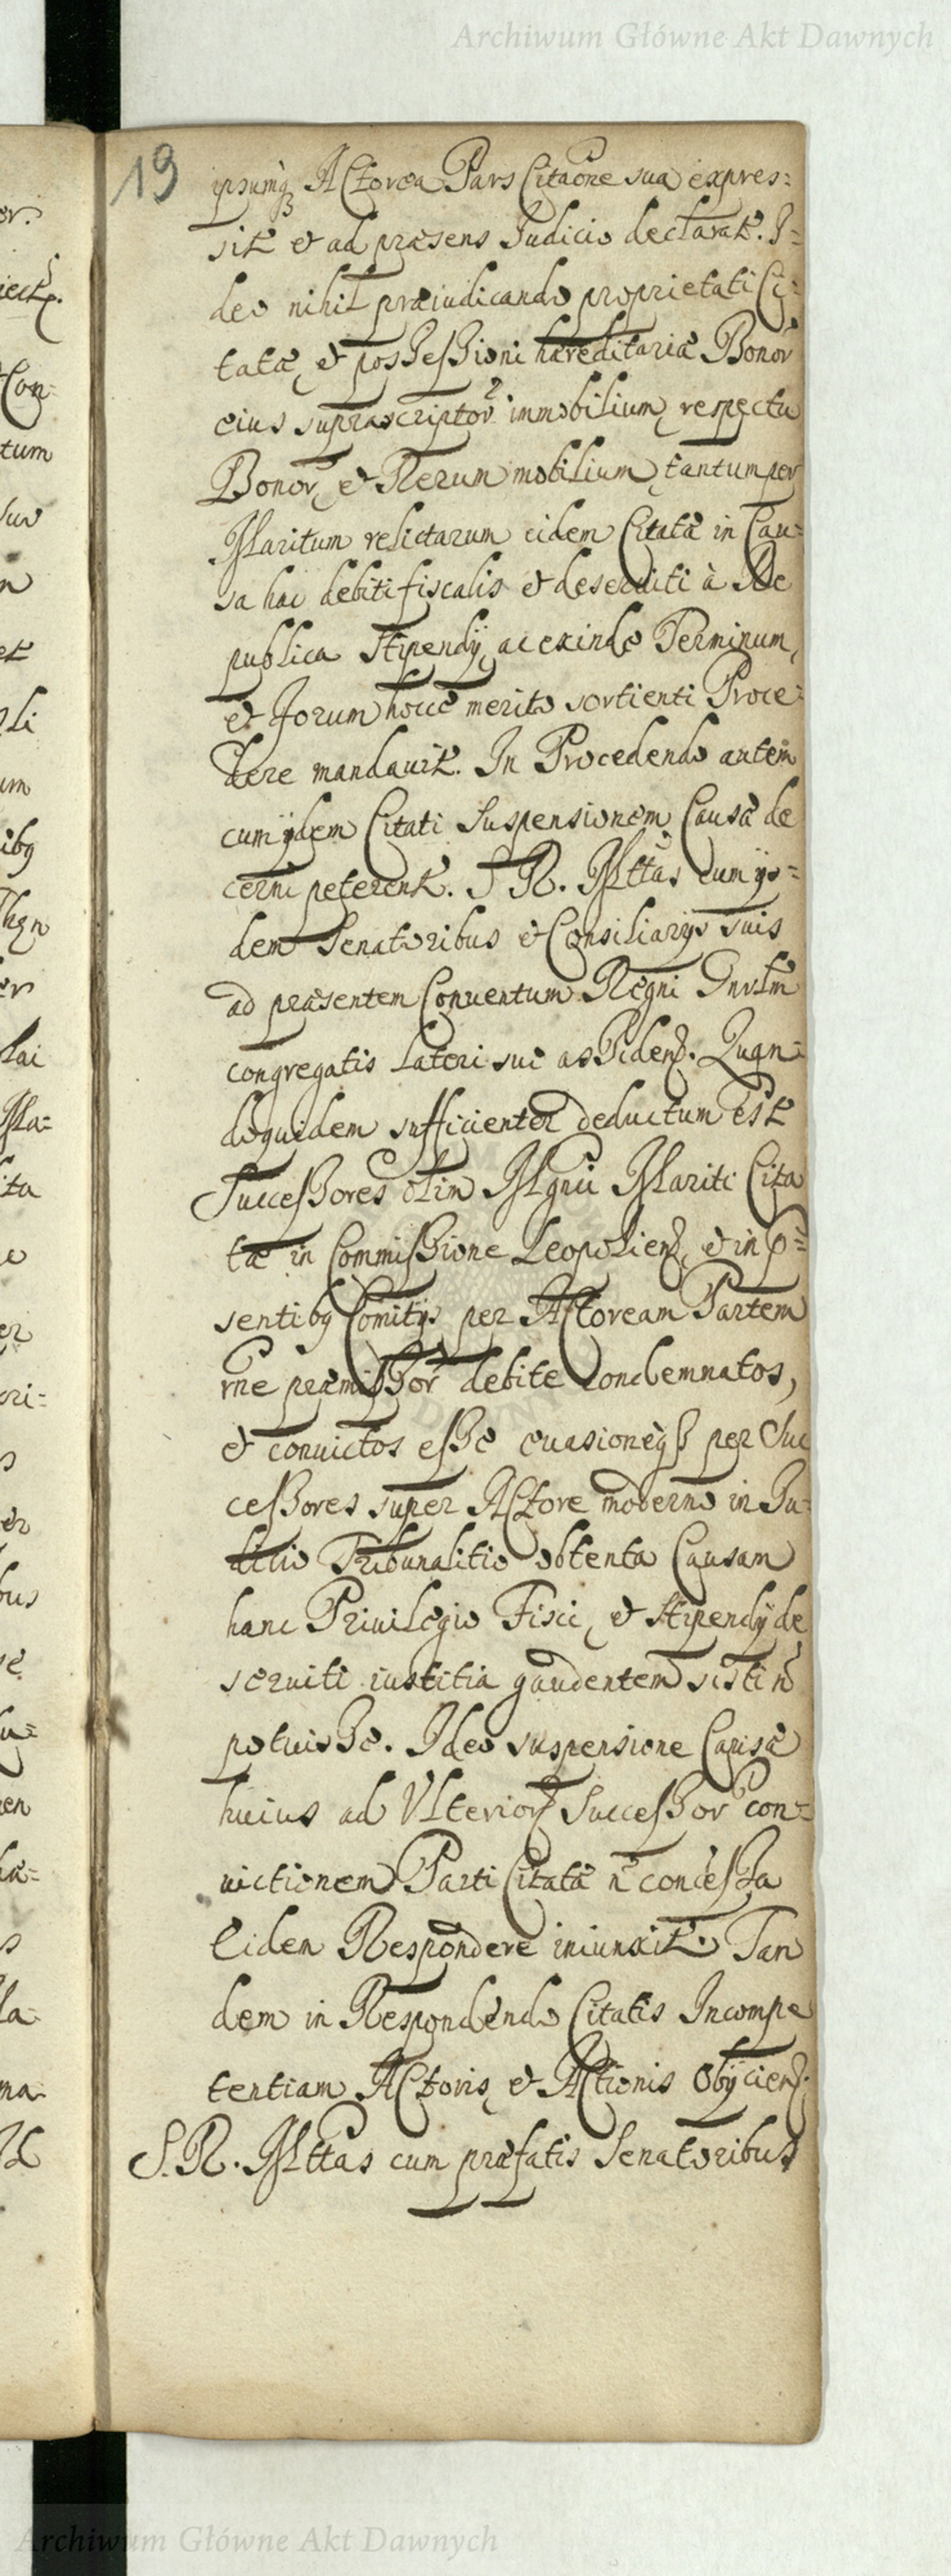 Archiwum Główne Akt Dawnych
19
ipsumq3 Actorea Pars Citaõne sua expres:
sit et ad præsens Judicio declarat. I=
deo nihil præiudicando proprietati Ci:
tatæ, et possessioni hæreditariæ Bonor
eius suprascriptor immobilium, respectu
Bonor, et Rerum mobilium, tantum per
Maritum relictarum eidem Citatæ in Cau=
sa hac debiti fiscalis et deserviti à Re
publica Stipendÿ, ac exinde Terminum,
et Forum hocce merito sortienti Proce=
dere mandavit. In Procedendo autem
cum ÿdem Citati Suspensionem Causæ de
cerni peterent. S R. Mttas cum ÿs=
dem Senatoribus et Consiliarÿs suis
ad præsentem Conventum Regni Gnrlm
congregatis Lateri sue assiden. Quan=
doquidem sufficienter deductum est
Successores olim Mgnii Mariti Cita
tæ in Commissione Leopolien, et in p=
sentiby Comitÿs per Actoream Partem
rne præmissor debite condemnatos,
et convictos esse evasioneq3 per Suc
cessores super Actore moderno in Iu=
ditio Tribunalitio obtenta Causam
hanc Privilegio Fisci, et Stipendÿ de
serviti iustitia gaudentem sisti n
potuisse. Ideo suspensione Causæ
huius ad Ulterior Successor con=
uictionem Parti Citatæ n concessa
Eidem Respondere iniunxit. Tan
dem in Respondendo Citatis Incompe
tentiam Actoris, et Actionis Obÿcien.
S. R. Mttas cum præfatis Senatoribus
er.
Con=
tum
et
li
um
iby
er
lai
Ma=
ta
er
ori=
er
bus
en
la
ma
Archiwum Główne Akt Dawnych